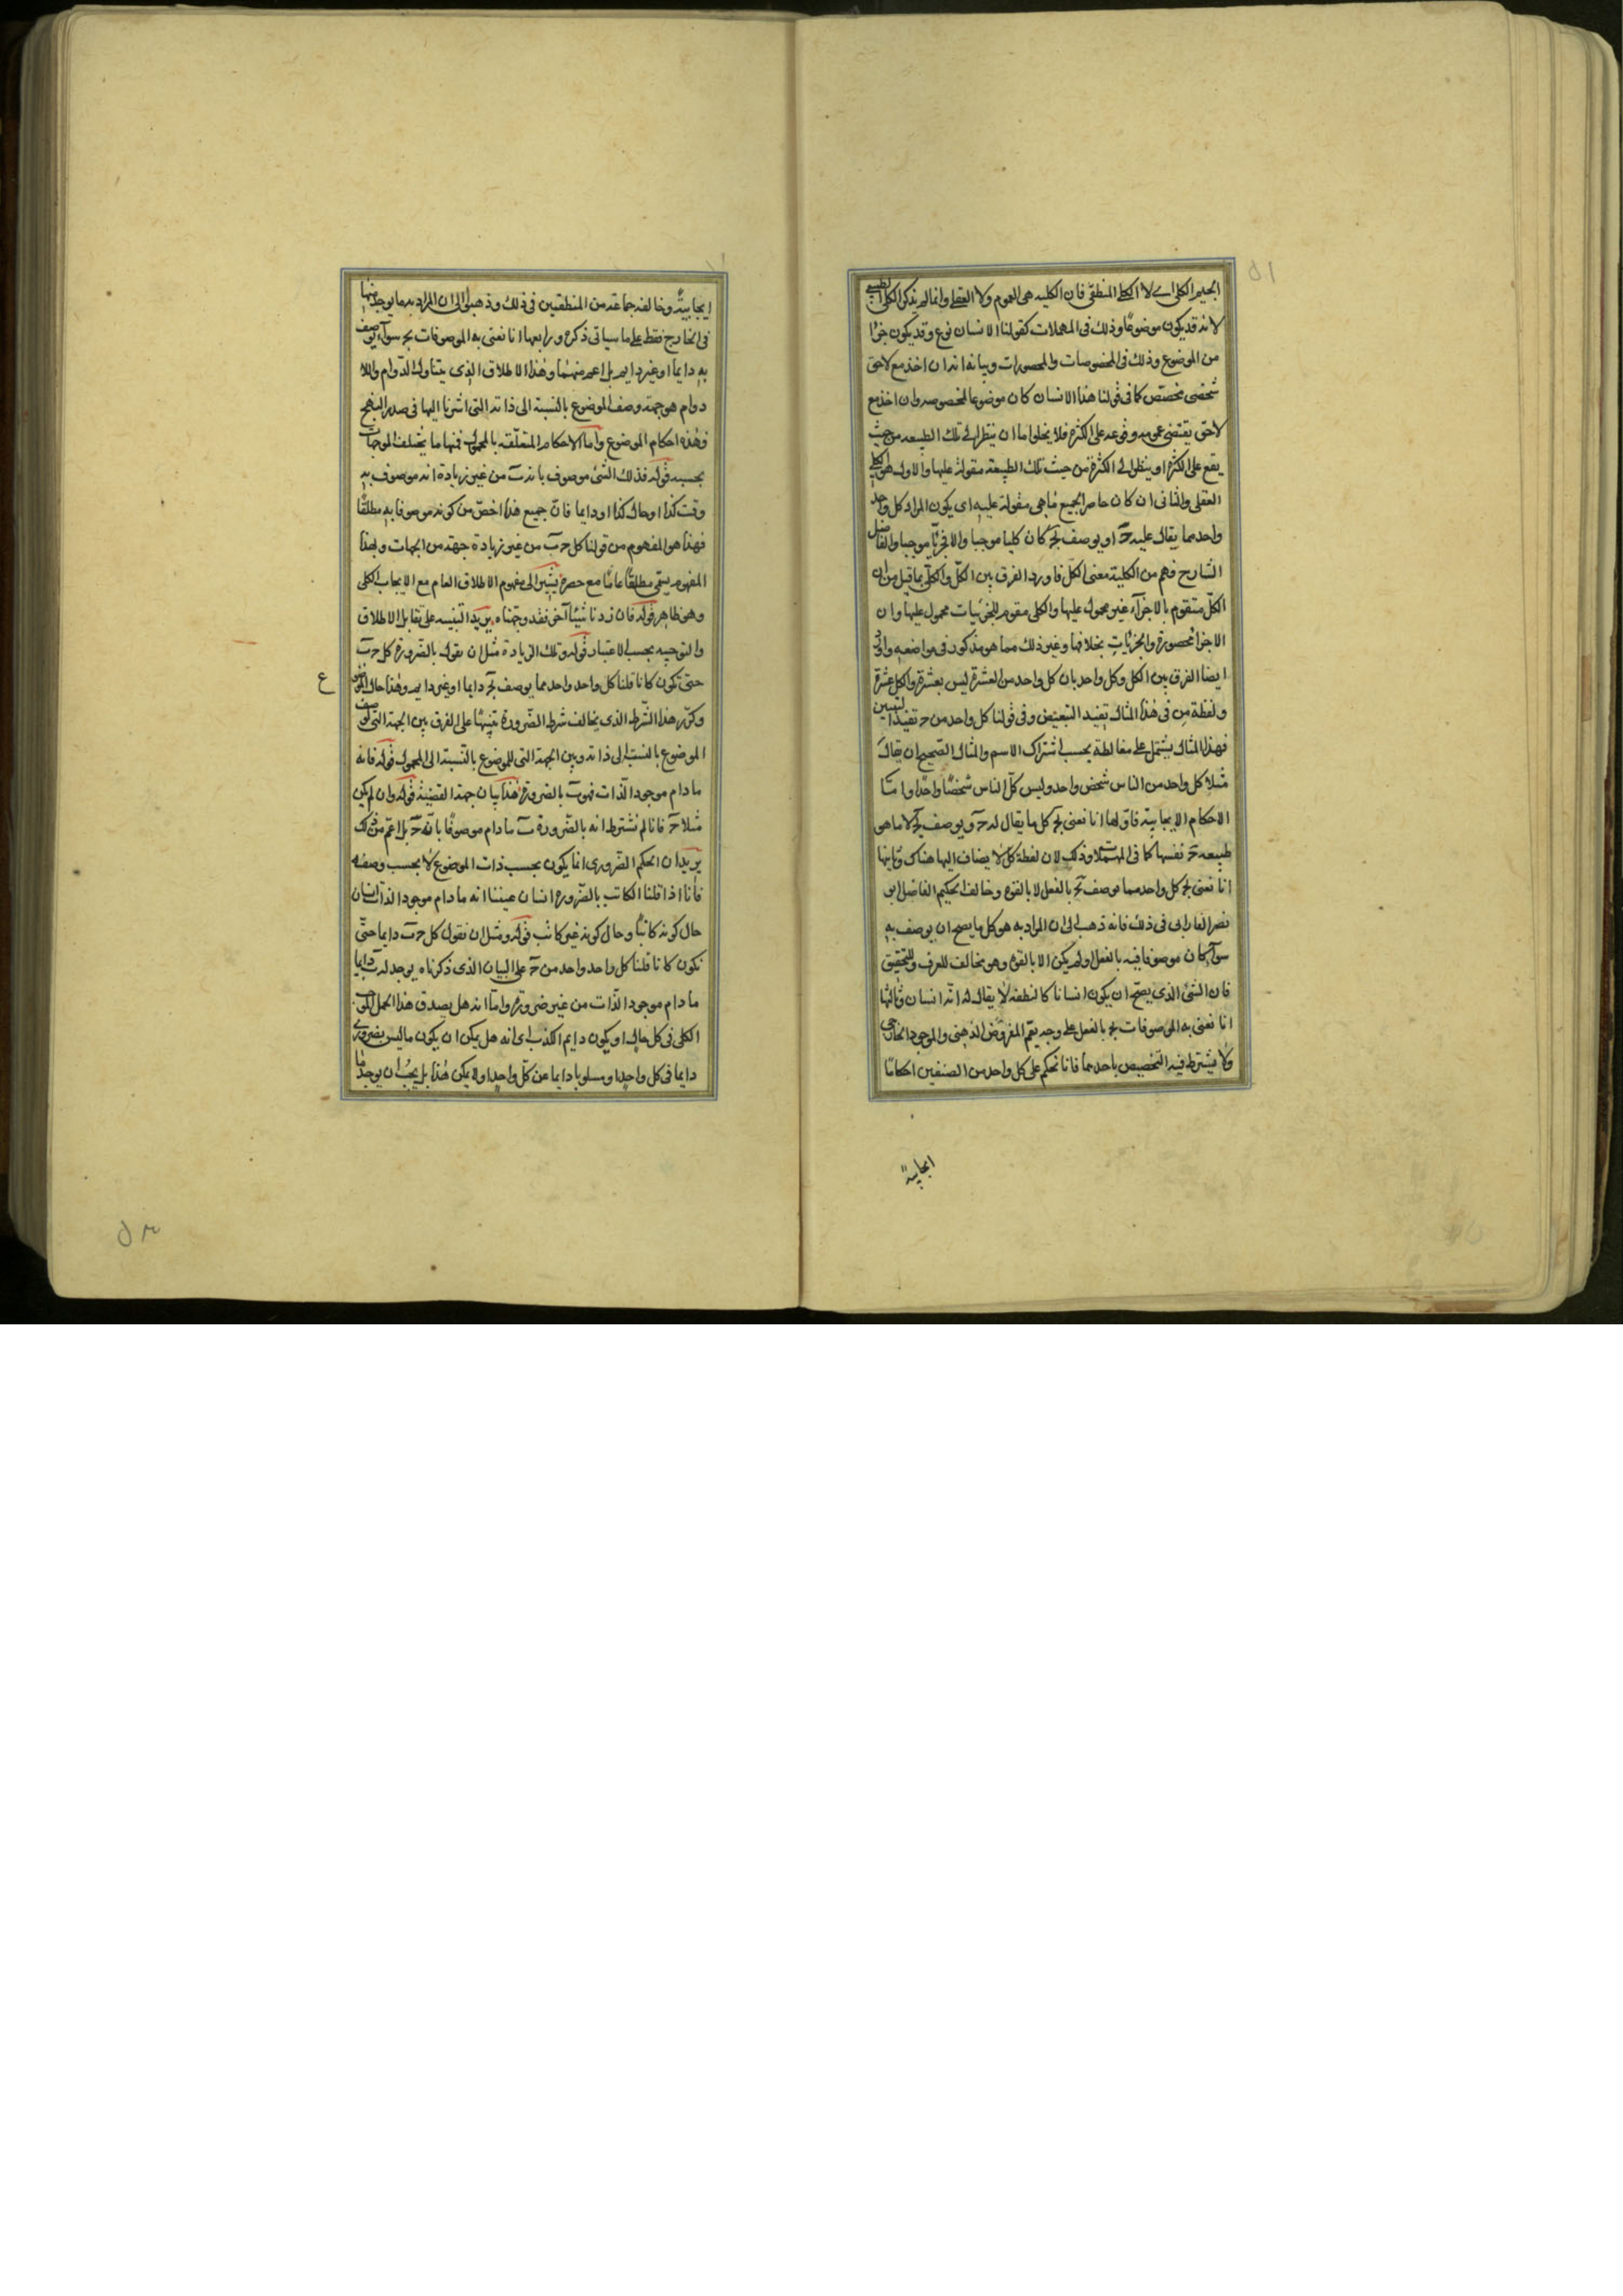 الجيم الكلى اى لا الكلى المنطقى فان الكلية هى العموم ولا العقلى وانما لم يذكر الكلى الطبيعى
لانه قد يكون موضوعًا وذلك فى المهملات كقولنا الانسان نوع وقد يكون جزءًا
من الموضوع وذلك فى المخصوصات والمحصورات وبيانه انه ان اخذ مع لاحق
شخصى مخصص كما فى قولنا هذا الانسان كان موضوعا لمخصوصه وان اخذ مع
لاحق يقتضى عمومه وقوعه على الكثرة فلا يخلو اما ان ينظر الى تلك الطبيعه من حيث
يقع على الكثرة او ينظر الى الكثرة من حيث تلك الطبيعة مقولة عليها والاول هو الكلى
العقلى والثانى ان كان حاصرا لجميع ما هى مقولة عليه اى يكون المراد كل واحد
واحد مما يقال عليه جَ او يوصف بجَ كان كليا موجبا والا فجزئيّا موجبا والفاضل
الشارح فهم من الكلية معنى الكل فاورد الفرق بين الكلّ والكلّى بما قيل من ان
الكلّ متقوم بالاجزآء غير محمول عليها والكلى مقوم للجزئيات محمول عليها وان
الاجزا محصورة والجزئيات بخلافها وغير ذلك مما هو مذكور فى مواضعه واورد
ايضا الفرق بين الكل وكل واحد بان كل واحد من العشرة ليس بعشرة والكل عشرة
ولفظة من فى هذا المثال يفيد التبعيض وفى قولنا كل واحد من ج تفيد التبيين
فهذا المثال يشتمل على مغالطة بحسب اشتراك الاسم والمثال الصحيح ان يقال
مثلا كل واحد من الناس شخص واحد وليس كلّ الناس شخصًا واحدًا واما
الاحكام الايجابية فاولها انا نعنى بج كل ما يقال له جَ ويوصف بجَ لا ما هى
طبيعه جَ نفسها كما فى المهملات وذلك لان لفظة كل لا يضاف اليها هناك وثانيها
انا نعنى بج كل واحد مما يوصف بجَ بالفعل لا بالقوه وخالف الحكيم الفاضل ابو
نصر الفارابى فى ذلك فانه ذهب الى ان المراد به هو كل ما يصح ان يوصف به
سوآء كان موصوفا فيه بالفعل او لم يكن الا بالقوه وهو مخالف للعرف والتحقيق
فان الشئ الذى يصح ان يكون انسانا كالنطفه لا يقال له انه انسان وثالثها
انا نعنى به الموصوفات بج بالفعل على وجه يعم المفروض الذهنى والموجود الخارجى
ولا يشترط فيه التخصيص باحدهما فانا نحكم على كل واحد من الصنفين احكامًا
ايجابية
ايجابيةً وخالفه جماعة من المنطقيين فى ذلك وذهبوا الى ان المراد به ما يوجد منها
فى الخارج فقط على ما سياتى ذكره ورابعها انا نعنى به الموصوفات بج سوآء يوصف
به دايما او غير دايم بل اعم منهما وهذا الاطلاق الذى يتناول الدوام واللا
دوام هو جهة وصف الموضوع بالنسبة الى ذاته التى اشرنا اليها فى صدر النهج
فهذه احكام الموضوع وأما الاحكام المتعلّقه بالمحمول فمنها ما يختلف الموجهات
بحسبه قوله فذلك الشئ موصوف بانه بَ من غير زيادة انه موصوف به
وقت كذا او حال كذا او دايما فانّ جميع هذا اخصّ من كونه موصوفا به مطلقًا
فهذا هو المفهوم من قولنا كل جَ بَ من غير زيادة جهة من الجهات وبهذا
المفهوم يسمى مطلقًا عامّا مع حصره يشير الى مفهوم الاطلاق العام مع الايجاب الكلى
وهى ظاهر قوله فان زدنا شيئًا آخر فقد وجهناه يريد التنبيه على تقابل الاطلاق
والتوجيه بحسب الاعتبار قوله وتلك الزيادة مثل ان يقول بالضرورة كل جَ بَ
حتى يكون كانا قلنا كل واحد واحد مما يوصف بجَ دايما او غير دايم وهذا حال الموضوع
ع
وكرّر هذا الشرط الذى يخالف شرط الضرورة تنبيهًا على الفرق بين الجهة التى لوصف
الموضوع بالنسبة الى ذاته وبين الجهة التى للموضوع بالنسبة الى المحمول قوله فانه
ما دام موجود الذّات فهو بَ بالضرورة هذا بيان جهة القضية قوله وان لم يكن
مثلا جَ فانا لم نشترط انه بالضّرورة بَ ما دام موصوفًا بانّه جَ بل اعم من ذلك
يريد ان الحكم الضّرورى انما يكون بحسب ذات الموضوع لا بحسب وصفه
فأنا اذا قلنا الكاتب بالضّروره انسان عنينا انه ما دام موجود الذات انسان
حال كونه كاتبًا وحال كونه غير كاتب قوله ومثل ان نقول كل جَ بَ دايما حتّى
نكون كانا قلنا كل واحد واحد من جَ على البيان الذى ذكرناه يوجد له بَ دايما
ما دام موجود الذّات من غير ضرورة واما انه هل يصدق هذا الحمل الموجب
الكلى فى كل حال او يكون دايم الكذب اى انه هل يمكن ان يكون ما ليس بضرورى
دايما فى كل واحد او مسلوبا دايما عن كلّ واحد او لا يمكن هذا بل يجب ان يوجد ما